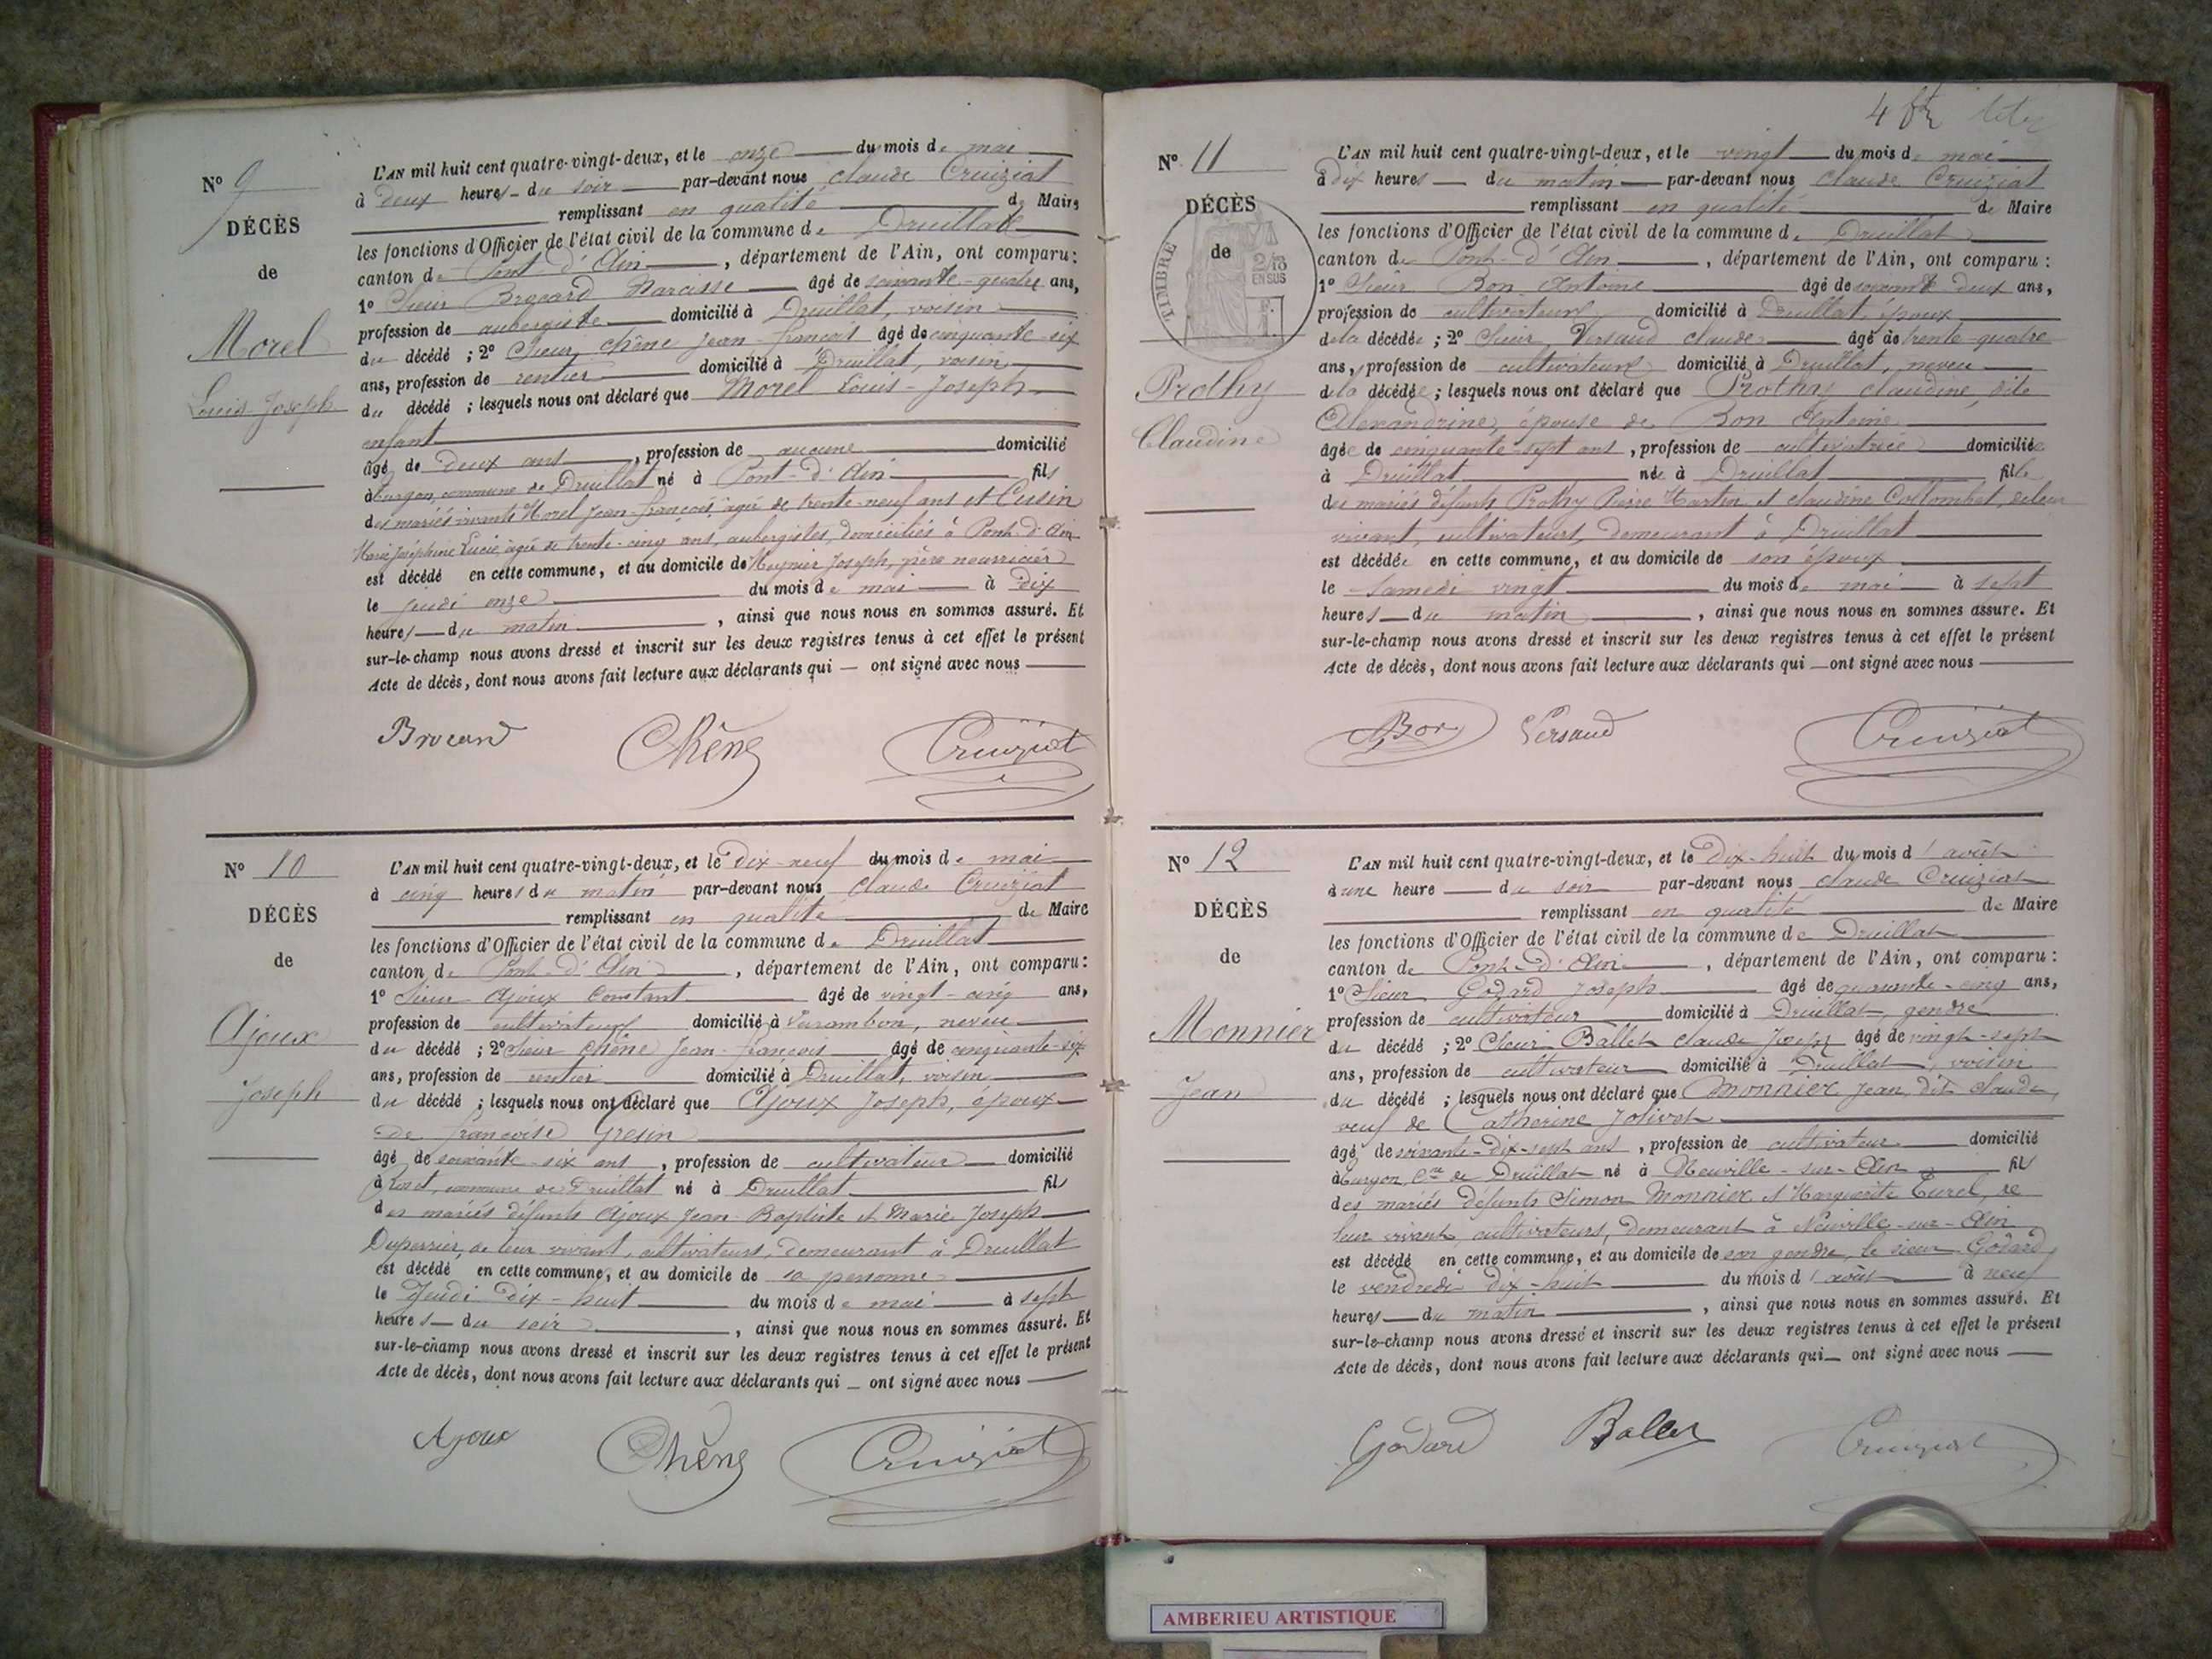 Nº 9
DÉCÈS
de
Morel
Louis Joseph
L'AN mil huit cent quatre-vingt-deux, et le onze du mois de mai
à deux heures du soir par-devant nous Claude Cruiziat
remplissant en qualité de Maire
les fonctions d'Officier de l'état civil de la commune de Druillat
canton de Pont-d'Ain, département de l'Ain, ont comparu:
1º Sieur Brocard Narcisse âgé de soixante-quatre ans,
profession de aubergiste domicilié à Druillat, voisin
du décédé ; 2º Sieur Chêne Jean-françois âgé de cinquante-six
ans, profession de rentier domicilié à Druillat, voisin
du décédé ; lesquels nous ont déclaré que Morel Louis-Joseph
enfant
âgé de deux ans, profession de aucune domicilié
à Turgon, commune de Druillat né à Pont-d'Ain fils
des mariés vivants Morel Jean-françois, âgé de trente-neuf ans et Cusin
Marie Joséphine Lucie, âgée de trente-cinq ans, aubergistes, domiciliés à Pont-d'Ain
est décédé en cette commune, et au domicile de Meynier Joseph, père nourricier
le jeudi onze du mois de mai à dix
heures du matin, ainsi que nous nous en sommes assuré. Et
sur-le-champ nous avons dressé et inscrit sur les deux registres tenus à cet effet le présent
Acte de décès, dont nous avons fait lecture aux déclarants qui — ont signé avec nous
Brocard Chêne Cruiziat
Nº 10
DÉCÈS
de
Ajoux
Joseph
L'AN mil huit cent quatre-vingt-deux, et le Dix-neuf du mois de mai
à cinq heures du matin par-devant nous Claude Cruiziat
remplissant en qualité de Maire
les fonctions d'Officier de l'état civil de la commune de Druillat
canton de Pont-d'Ain, département de l'Ain, ont comparu:
1º Sieur Ajoux Constant âgé de vingt-cinq ans,
profession de cultivateur domicilié à Varambon, neveu
du décédé ; 2º Sieur Chêne Jean-françois âgé de cinquante-six
ans, profession de rentier domicilié à Druillat, voisin
du décédé ; lesquels nous ont déclaré que Ajoux Joseph, époux
de françoise Gresin
âgé de soixante-six ans, profession de cultivateur domicilié
à commune de Druillat né à Druillat fils
des mariés défunts Ajoux Jean-Baptiste et Marie Joseph
Duperrier, de leur vivant, cultivateurs, demeurant à Druillat
est décédé en cette commune, et au domicile de sa personne
le Jeudi dix-huit du mois de mai à sept
heures du soir, ainsi que nous nous en sommes assuré. Et
sur-le-champ nous avons dressé et inscrit sur les deux registres tenus à cet effet le présent
Acte de décès, dont nous avons fait lecture aux déclarants qui — ont signé avec nous
Ajoux Chêne Cruiziat
4
Nº 11
DÉCÈS
de
TIMBRE
2/10
EN SUS
Prothy
Claudine
L'AN mil huit cent quatre-vingt-deux, et le vingt du mois de mai
à dix heures du matin par-devant nous Claude Cruiziat
remplissant en qualité de Maire
les fonctions d'Officier de l'état civil de la commune de Druillat
canton de Pont-d'Ain, département de l'Ain, ont comparu :
1º Sieur Bon Antoine âgé de soixante deux ans,
profession de cultivateur domicilié à Druillat, époux
de la décédée ; 2º Sieur Versaud Claude âgé de trente-quatre
ans, profession de cultivateur domicilié à Druillat, neveu
de la décédée ; lesquels nous ont déclaré que Prothy Claudine, dite
Alexandrine, épouse de Bon Antoine
âgée de cinquante-sept ans, profession de cultivatrice domiciliée
à Druillat née à Druillat fille
des mariés défunts Prothy Pierre Martin et Claudine Collombet, de leur
vivant, cultivateurs, demeurant à Druillat
est décédée en cette commune, et au domicile de son époux
le samedi vingt du mois de mai à sept
heures du matin, ainsi que nous nous en sommes assuré. Et
sur-le-champ nous avons dressé et inscrit sur les deux registres tenus à cet effet le présent
Acte de décès, dont nous avons fait lecture aux déclarants qui — ont signé avec nous
Bon Versaud Cruiziat
Nº 12
DÉCÈS
de
Monnier
Jean
L'AN mil huit cent quatre-vingt-deux, et le Dix-huit du mois d'août
à une heure du soir par-devant nous Claude Cruiziat
remplissant en qualité de Maire
les fonctions d'Officier de l'état civil de la commune de Druillat
canton de Pont-d'Ain, département de l'Ain, ont comparu :
1º Sieur Godard Joseph âgé de quarante-cinq ans,
profession de cultivateur domicilié à Druillat, gendre
du décédé ; 2º Sieur Ballet Claude Joseph âgé de vingt-sept
ans, profession de cultivateur domicilié à Druillat, voisin
du décédé ; lesquels nous ont déclaré que Monnier Jean, dit Claude,
veuf de Catherine Jolivet
âgé de soixante-dix-sept ans, profession de cultivateur domicilié
à Turgon, Cne de Druillat né à Neuville-sur-Ain fils
des mariés défunts Simon Monnier et Marguerite Turel, de
leur vivant, cultivateurs, demeurant à Neuville-sur-Ain
est décédé en cette commune, et au domicile de son gendre, le sieur Godard
le vendredi dix-huit du mois d'août à neuf
heures du matin, ainsi que nous nous en sommes assuré. Et
sur-le-champ nous avons dressé et inscrit sur les deux registres tenus à cet effet le présent
Acte de décès, dont nous avons fait lecture aux déclarants qui — ont signé avec nous
Godard Ballet Cruiziat
AMBERIEU ARTISTIQUE